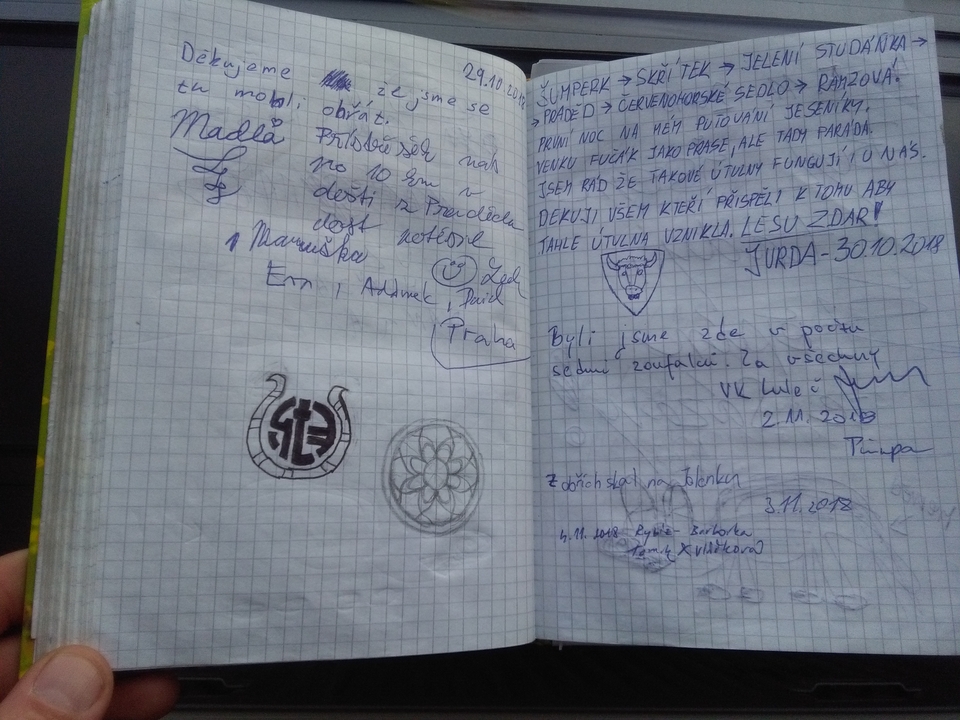 29.10.2018
Děkujeme že jsme se
tu mohli ohřát.
Madla
po 10 km v
dešti z Praděda
dost potěšil
Maruška
Adámek, David
Praha
ŠUMPERK → SKŘÍTEK → JELENÍ STUDÁŇKA →
→ PRADĚD → ČERVENOHORSKÉ SEDLO → RAMZOVÁ!
PRVNÍ NOC NA MÉM PUŤOVÁNÍ JESENÍKY.
VENKU FUČÁK JAKO PRASE, ALE TADY PARÁDA.
JSEM RÁD ŽE TAKOVÉ ÚTULNY FUNGUJÍ I U NÁS.
DĚKUJI VŠEM KTEŘÍ PŘISPĚLI K TOMU ABY
TAHLE ÚTULNA VZNIKLA. LESU ZDAR!
JURDA - 30.10.2018
Byli jsme zde v počtu
sedmi zoufalců. Za všechny
VK
2.11.2018
Z obřích skal na
3.11.2018
4.11.2018 Barborka